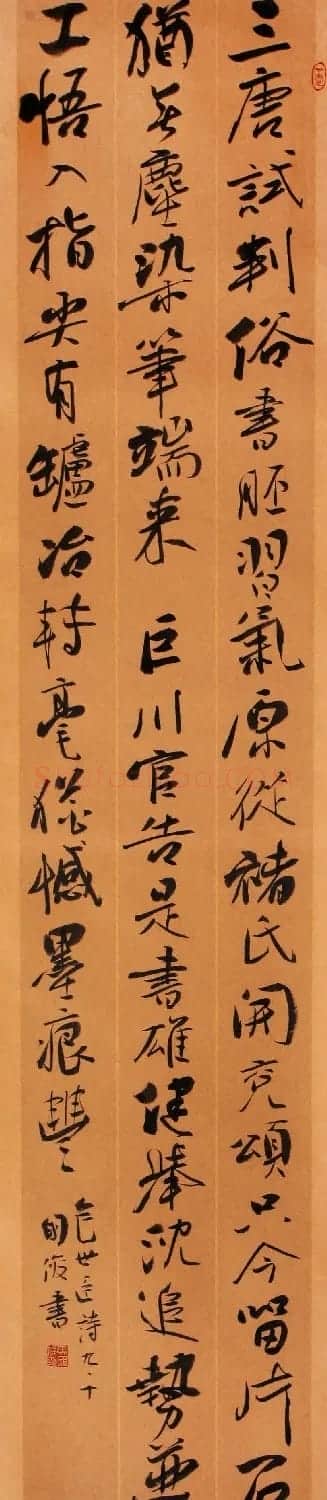 三唐試判俗書胚習氣原從褚氏開兗頌只今留片石
猶無塵染筆端來 巨川官告是書雄健舉沈追勢並
工悟入指尖有罏冶轉毫猶憾墨痕豐
包世臣詩九、十
明書